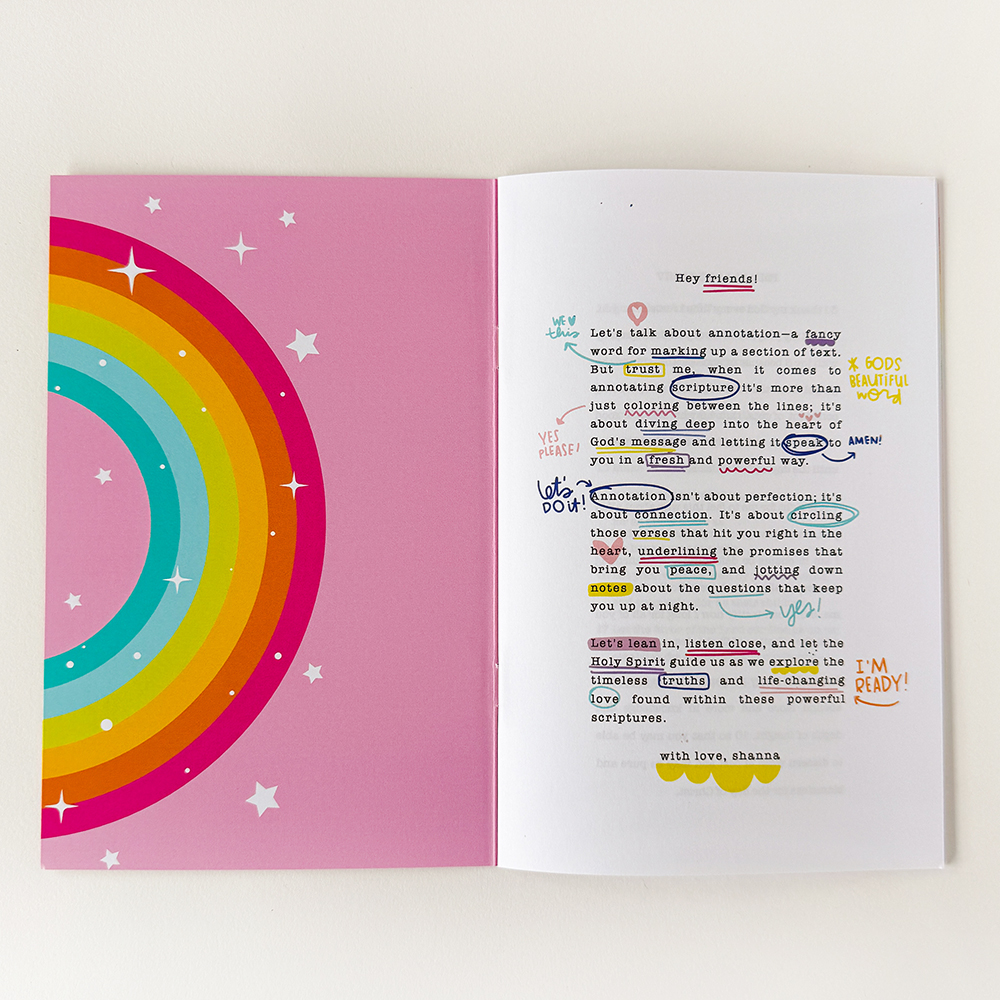 Hey friends!
WE
this
Let's talk about annotation—a fancy
word for marking up a section of text.
But trust me, when it comes to
* GODS
BEAUTIFUL
word
annotating scripture it's more than
just coloring between the lines; it's
YES
PLEASE!
about diving deep into the heart of
God's message and letting it speak to
AMEN!
you in a fresh and powerful way.
let's
DO it!
Annotation isn't about perfection; it's
about connection. It's about circling
those verses that hit you right in the
heart, underlining the promises that
bring you peace, and jotting down
notes about the questions that keep
you up at night.
yes!
Let's lean in, listen close, and let the
Holy Spirit guide us as we explore the
timeless truths and life-changing
I'M
READY!
love found within these powerful
scriptures.
with love, shanna